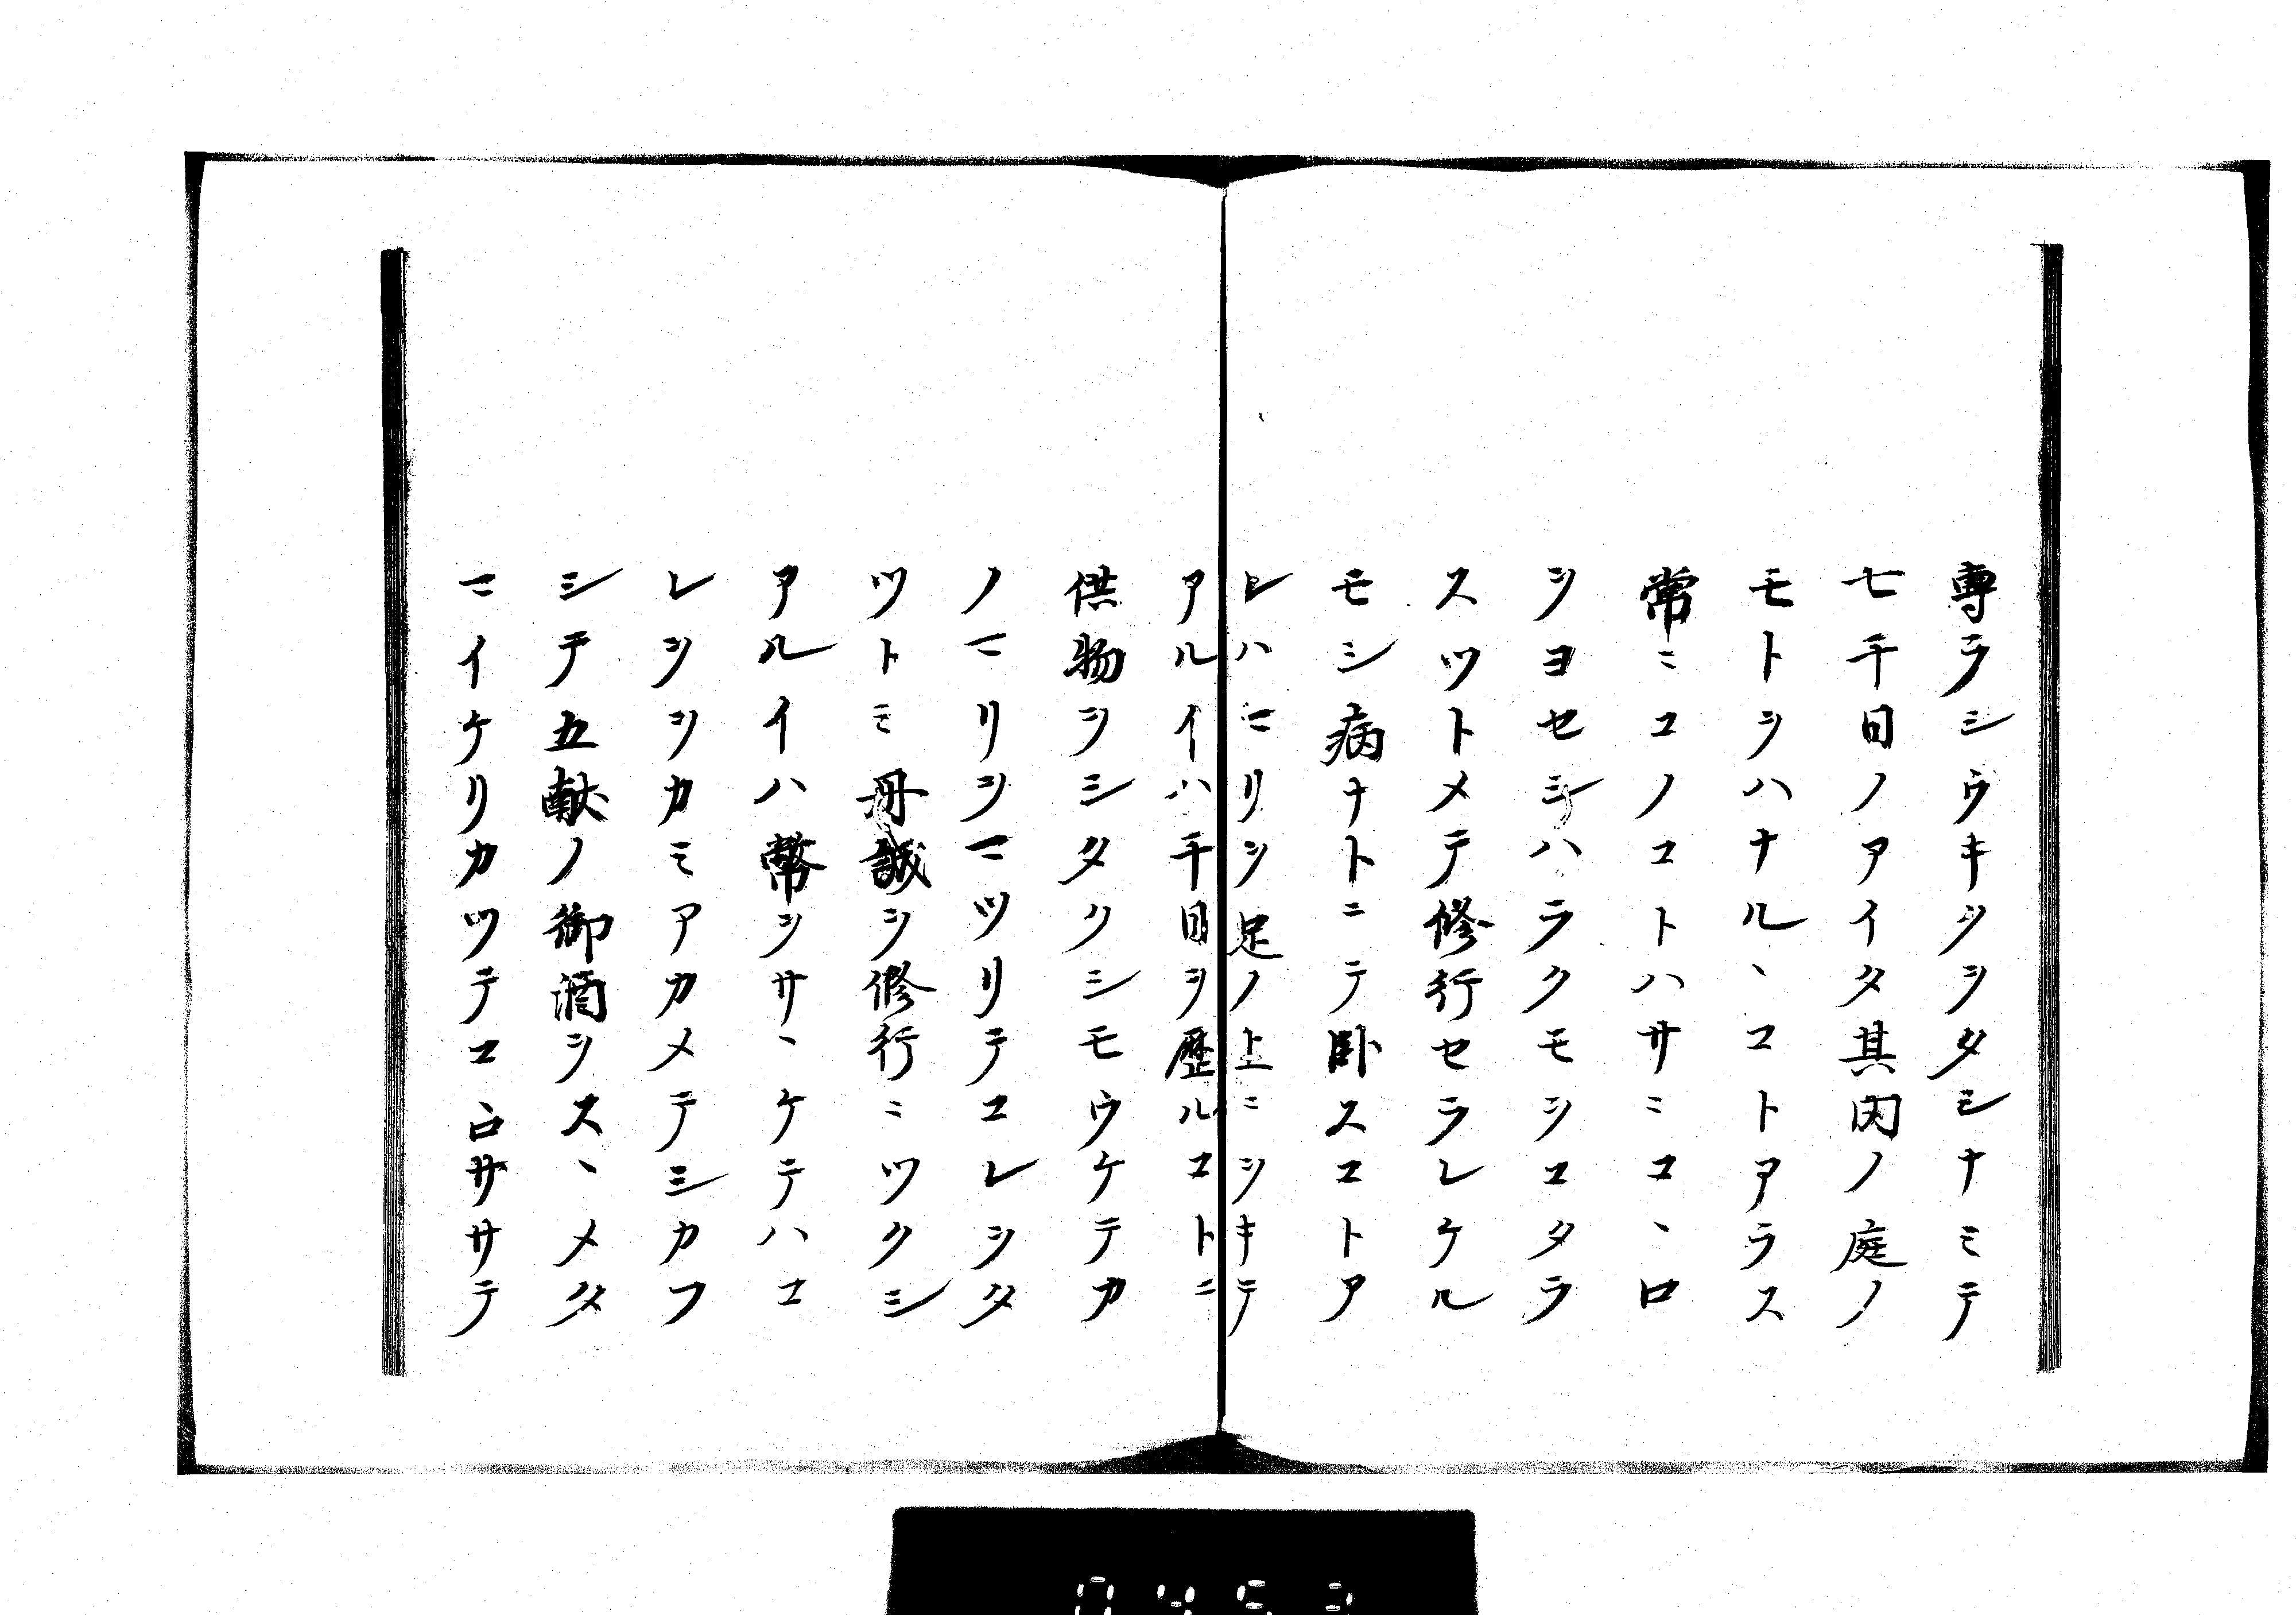 専ラシウキタヲタシナミテ
七千日ノアイタ其内ノ庭ノ
モトヲハナルヽコトアラス
常ニコノコトハサニコヽロ
ヲヨセシハラクモヲコタラ
スツトメテ修行セラレケル
モシ病ナトニテ臥スコトア
レハマリヲ足ノ上ニヲキテ
アルイハ千日ヲ歴ルコトニ
供物ヲシタクシモウケテカ
ノマリヲマツリテコレヲタ
ツトミ丹誠ヲ修行ニツクシ
アルイハ幣ヲサヽケテハコ
レヲヲカミアカメテシカフ
シテ五献ノ御酒ヲスヽメタ
マイケリカツテコヽロササテ
0453